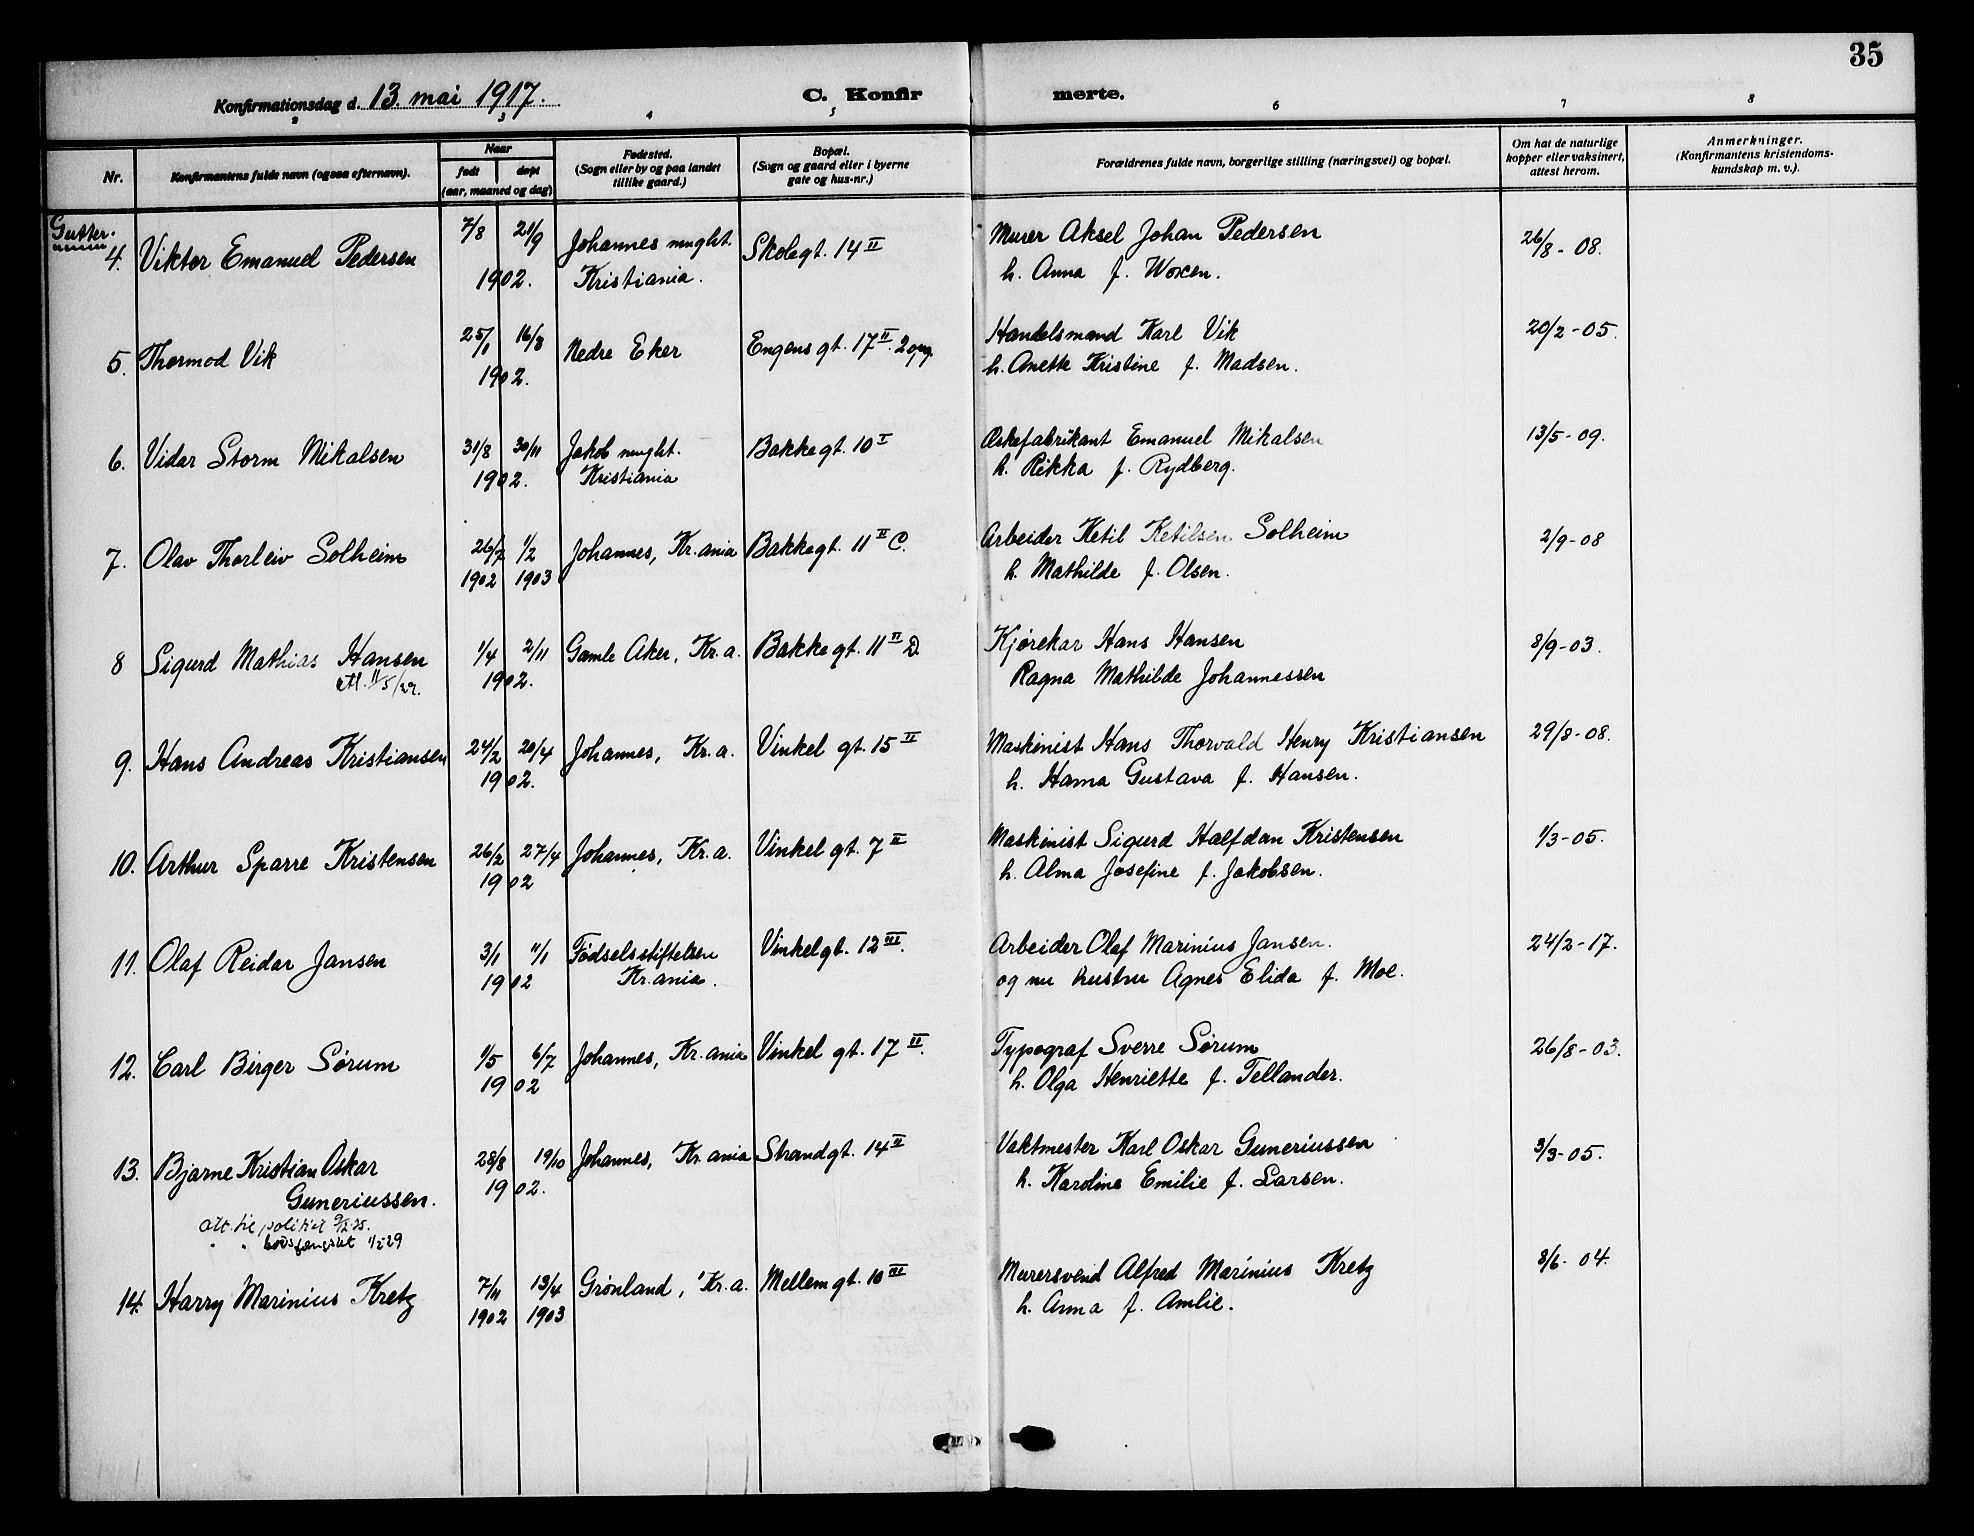 35
Konfirmationsdag d. 13. mai 1917. C. Konfirmerte.
2 3 4 5 6 7 8
Nr. Konfirmantens fulde navn (ogsaa efternavn). Naar født døpt (aar, maaned og dag) Fødested. (Sogn eller by og paa landet tillike gaard.) Bopæl. (Sogn og gaard eller i byerne gate og hus-nr.) Forældrenes fulde navn, borgerlige stilling (næringsvei) og bopæl. Om hat de naturlige kopper eller vaksinert, attest herom. Anmerkninger. (Konfirmantens kristendoms-kundskap m. v.).
Gutter.
4. Viktor Emanuel Pedersen 7/8 21/9 Johannes mnght. Skolegt. 14 II Murer Aksel Johan Pedersen 26/8-08.
1902. Kristiania. h. Anna f. Woxen.
5. Thormod Vik 25/1 16/3 Nedre Eker Engens gt. 17 II. 2 opg. Handelsmand Karl Vik 20/2-05.
1902. h. Anette Kristine f. Madsen.
6. Vidar Storm Mikalsen 31/8 30/11 Jakob mnght. Bakkegt. 10 I Æskefabrikant Emanuel Mikalsen 13/5-09.
1902. Kristiania h. Rikka f. Rydberg.
7. Olav Thorleiv Solheim 26/7 1/2 Johannes, Kr.ania Bakkegt. 11 II C. Arbeider Ketil Ketilsen Solheim 2/9-08
1902 1903 h. Mathilde f. Olsen.
8 Sigurd Mathias Hansen 1/4 2/11 Gamle Aker, Kr.a. Bakkegt. 11 II D. Kjørekar Hans Hansen 8/9-03.
1902. Ragna Mathilde Johannessen
9. Hans Andreas Kristiansen 24/2 20/4 Johannes, Kr.a. Vinkel gt. 15 II Maskinist Hans Thorvald Henry Kristiansen 29/8-08.
1902. h. Hama Gustava f. Hansen.
10. Arthur Sparre Kristensen 26/2 27/4 Johannes, Kr.a. Vinkel gt. 7 II Maskinist Sigurd Halfdan Kristensen 1/3-05.
1902 h. Alma Josefine f. Jakobsen.
11. Olaf Reidar Jansen 3/1 11/1 Fødselsstiftelsen Vinkelgt. 12 III. Arbeider Olaf Marinius Jansen. 24/2-17.
1902 Kr.ania. og nu hustru Agnes Elida f. Moe.
12. Carl Birger Sørum 1/5 6/7 Johannes, Kr.ania Vinkel gt. 17 II. Typograf Sverre Sørum 26/8-03.
1902 h. Olga Henriette f. Tellander.
13. Bjarne Kristian Oskar 28/8 19/10 Johannes, Kr.ania Strandgt. 14 II Vaktmester Karl Oskar Guneriussen 3/3-05.
Guneriussen. 1902. h. Karoline Emilie f. Larsen.
att. til politiet
" " bodsfængslet
14. Harry Marinius Kretz 7/11 13/4 Grønland, Kr.a. Mellemgt. 10 III Murersvend Alfred Marinius Kretz 8/6-04.
1902 1903 h. Anna f. Amlie.